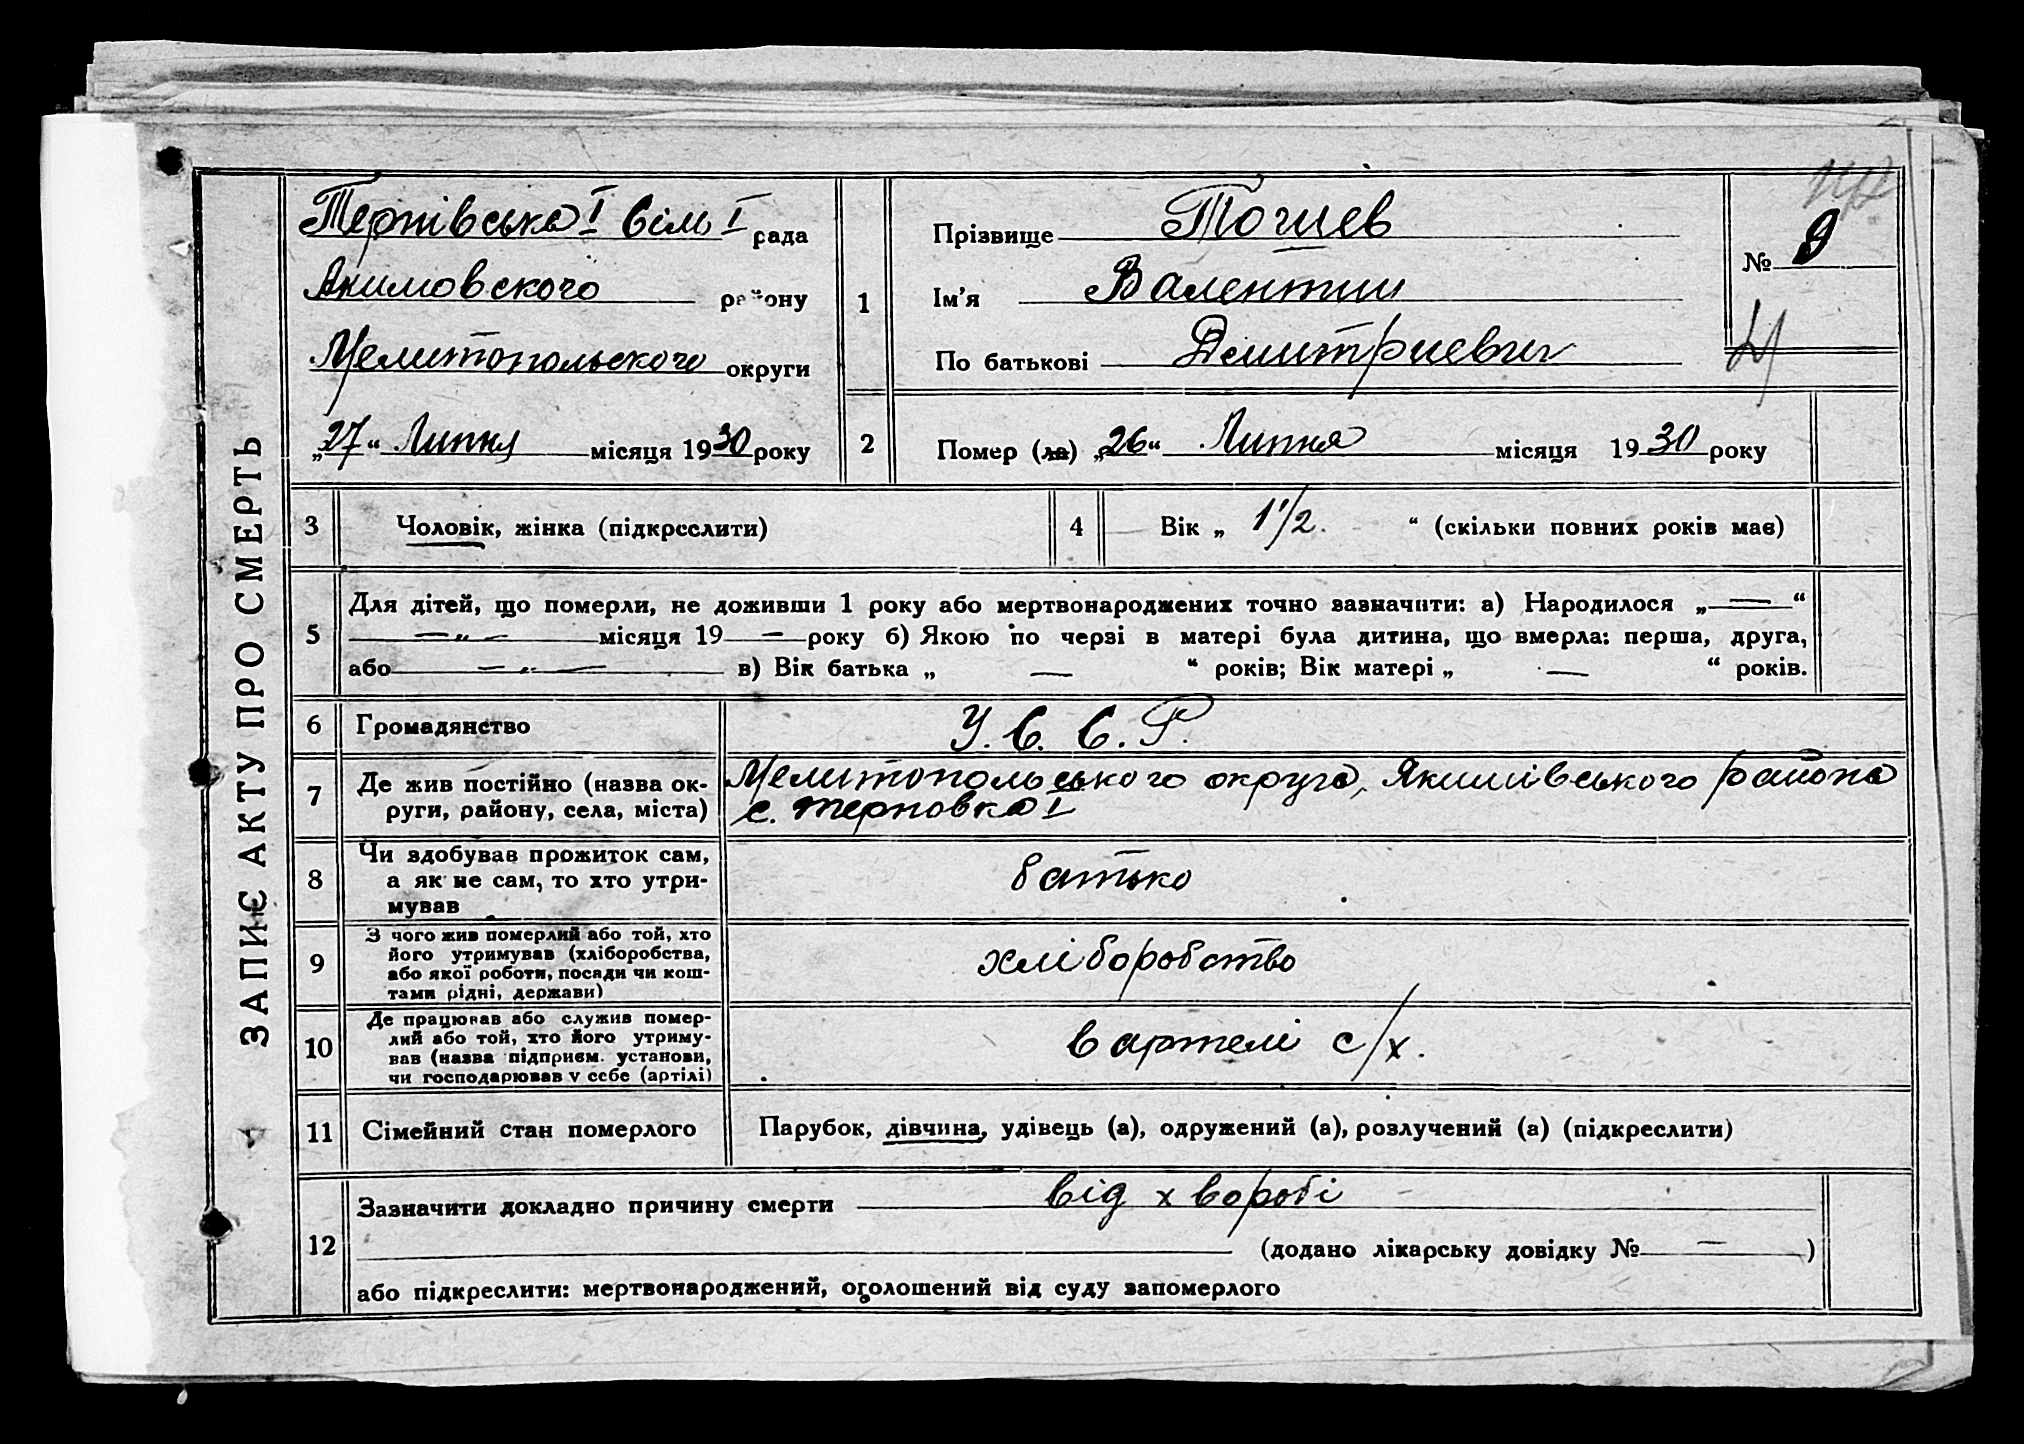 ЗАПИС АКТУ ПРО СМЕРТЬ
Терпівська I сіль I рада
Акимовского району
Мелитопольского округи
„27“ Липня місяця 1930 року
1
Прізвище Тогиев
Ім'я Валентин
По батькові Дмитриевич
№ 9
2
Помер (ла) „26“ Липня місяця 1930 року
3
Чоловік, жінка (підкреслити)
4
Вік „ 1 1/2. “ (скільки повних років має)
5
Для дітей, що померли, не доживши 1 року або мертвонароджених точно зазначити: а) Народилося „ — “
— „ — місяця 19 — року б) Якою по черзі в матері була дитина, що вмерла: перша, друга,
або — „ — в) Вік батька „ — “ років; Вік матері „ — “ років.
6
Громадянство
У. С. С. Р.
7
Де жив постійно (назва ок-
руги, району, села, міста)
Мелитопольського округа, Якимівського района
с. Терновка I
8
Чи здобував прожиток сам,
а як не сам, то хто утри-
мував
батько
9
З чого жив померлий або той, хто
його утримував (хліборобства,
або якої роботи, посади чи кош-
тами рідні, держави)
хліборобство
10
Де працював або служив помер-
лий або той, хто його утриму-
вав (назва підприєм. установи,
чи господарював у себе (артілі)
в артелі с/х.
11
Сімейний стан померлого
Парубок, дівчина, удівець (а), одружений (а), розлучений (а) (підкреслити)
12
Зазначити докладно причину смерти від хвороби
(додано лікарську довідку № — )
або підкреслити: мертвонароджений, оголошений від суду запомерлого